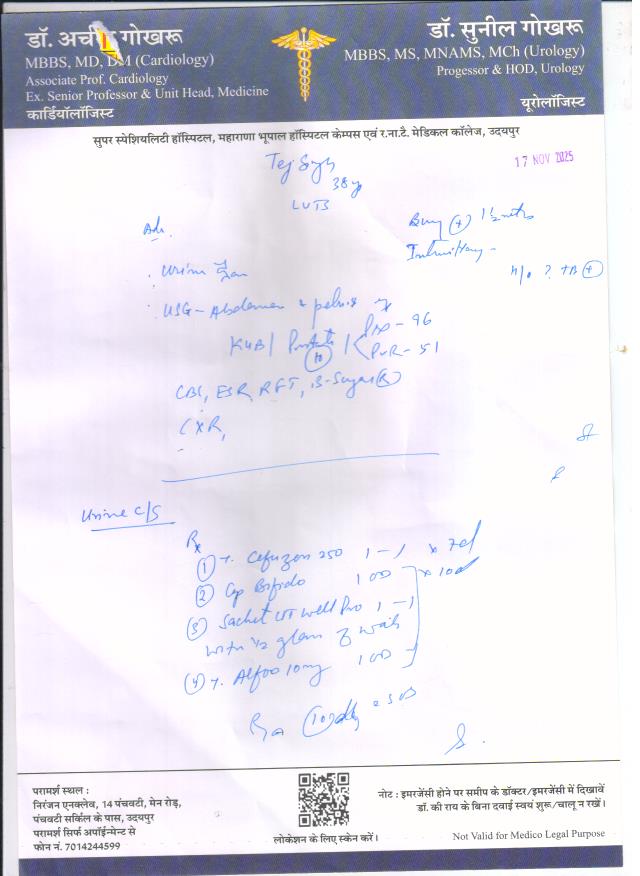 डॉ. अर्चना गोखरू
MBBS, MD, DM (Cardiology)
Associate Prof. Cardiology
Ex. Senior Professor & Unit Head, Medicine
कार्डियॉलॉजिस्ट
डॉ. सुनील गोखरू
MBBS, MS, MNAMS, MCh (Urology)
Progessor & HOD, Urology
यूरोलॉजिस्ट
सुपर स्पेशियलिटी हॉस्पिटल, महाराणा भूपाल हॉस्पिटल केम्पस एवं र.ना.टै. मेडिकल कॉलेज, उदयपुर
17 NOV 2025
38y
LUTS
Adv.
(+) 1½
h/o ? TB (+)
Urine
USG - Abdomen & pelvis
KUB / Prostate / PVR - 51
96
CBC, ESR, RFT, B-Sugar (R)
CXR,
Urine C/S
Rx
(1) T. 250 1-1 x 7d
(2) Cap Bifido 1 OD x 10d
(3) Sachet UT Well Pro 1-1
with ½ glass of water
(4) T. Alfoo 10mg 1 OD
परामर्श स्थल :
निरंजन एनक्लेव, 14 पंचवटी, मेन रोड़,
पंचवटी सर्किल के पास, उदयपुर
परामर्श सिर्फ अपॉईन्मेन्ट से
फोन नं. 7014244599
लोकेशन के लिए स्केन करें।
नोट : इमरजेंसी होने पर समीप के डॉक्टर/इमरजेंसी में दिखावें
डॉ. की राय के बिना दवाई स्वयं शुरू/चालू न रखें।
Not Valid for Medico Legal Purpose